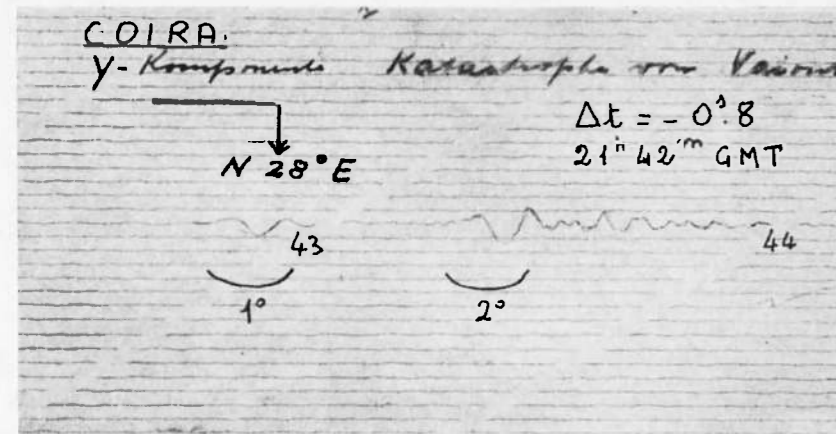 COIRA.
Y-Komponente Katastrophe von Vaiont
N 28° E
Δt = - 0ˢ.8
21ʰ 42ᵐ GMT
43
44
1°
2°